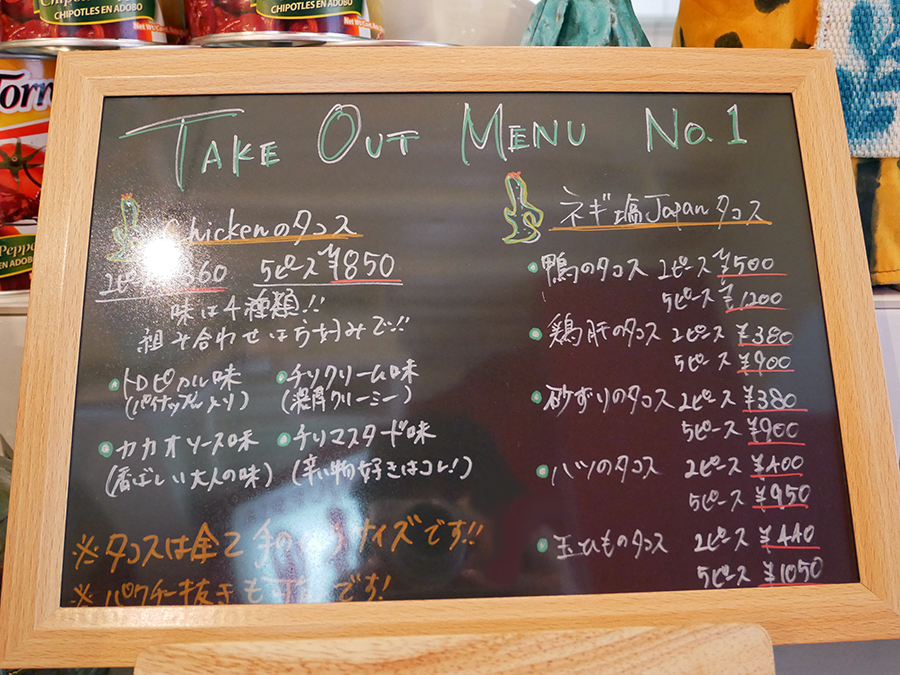 CHIPOTLES IN ADOBO
CHIPOTLES EN ADOBO
Torr
Peppe
EN ADOBO
TAKE OUT MENU No.1
Chickenのタコス
2ピース 360 5ピース ¥850
味は4種類!!
組み合わせはお好みで!!
・トロピカル味 ・チリクリーム味
(パイナップル入り) (濃厚クリーミー)
・カカオソース味 ・チリマスタード味
(香ばしい大人の味) (辛い物好きはコレ!)
※タコスは全て手の サイズです!!
※パクチー抜きも可 です!
ネギ塩Japanタコス
・鴨のタコス 2ピース ¥500
5ピース ¥1200
・鶏肝のタコス 2ピース ¥380
5ピース ¥900
・砂ずりのタコス 2ピース ¥380
5ピース ¥900
・ハツのタコス 2ピース ¥400
5ピース ¥950
・玉ひものタコス 2ピース ¥440
5ピース ¥1050